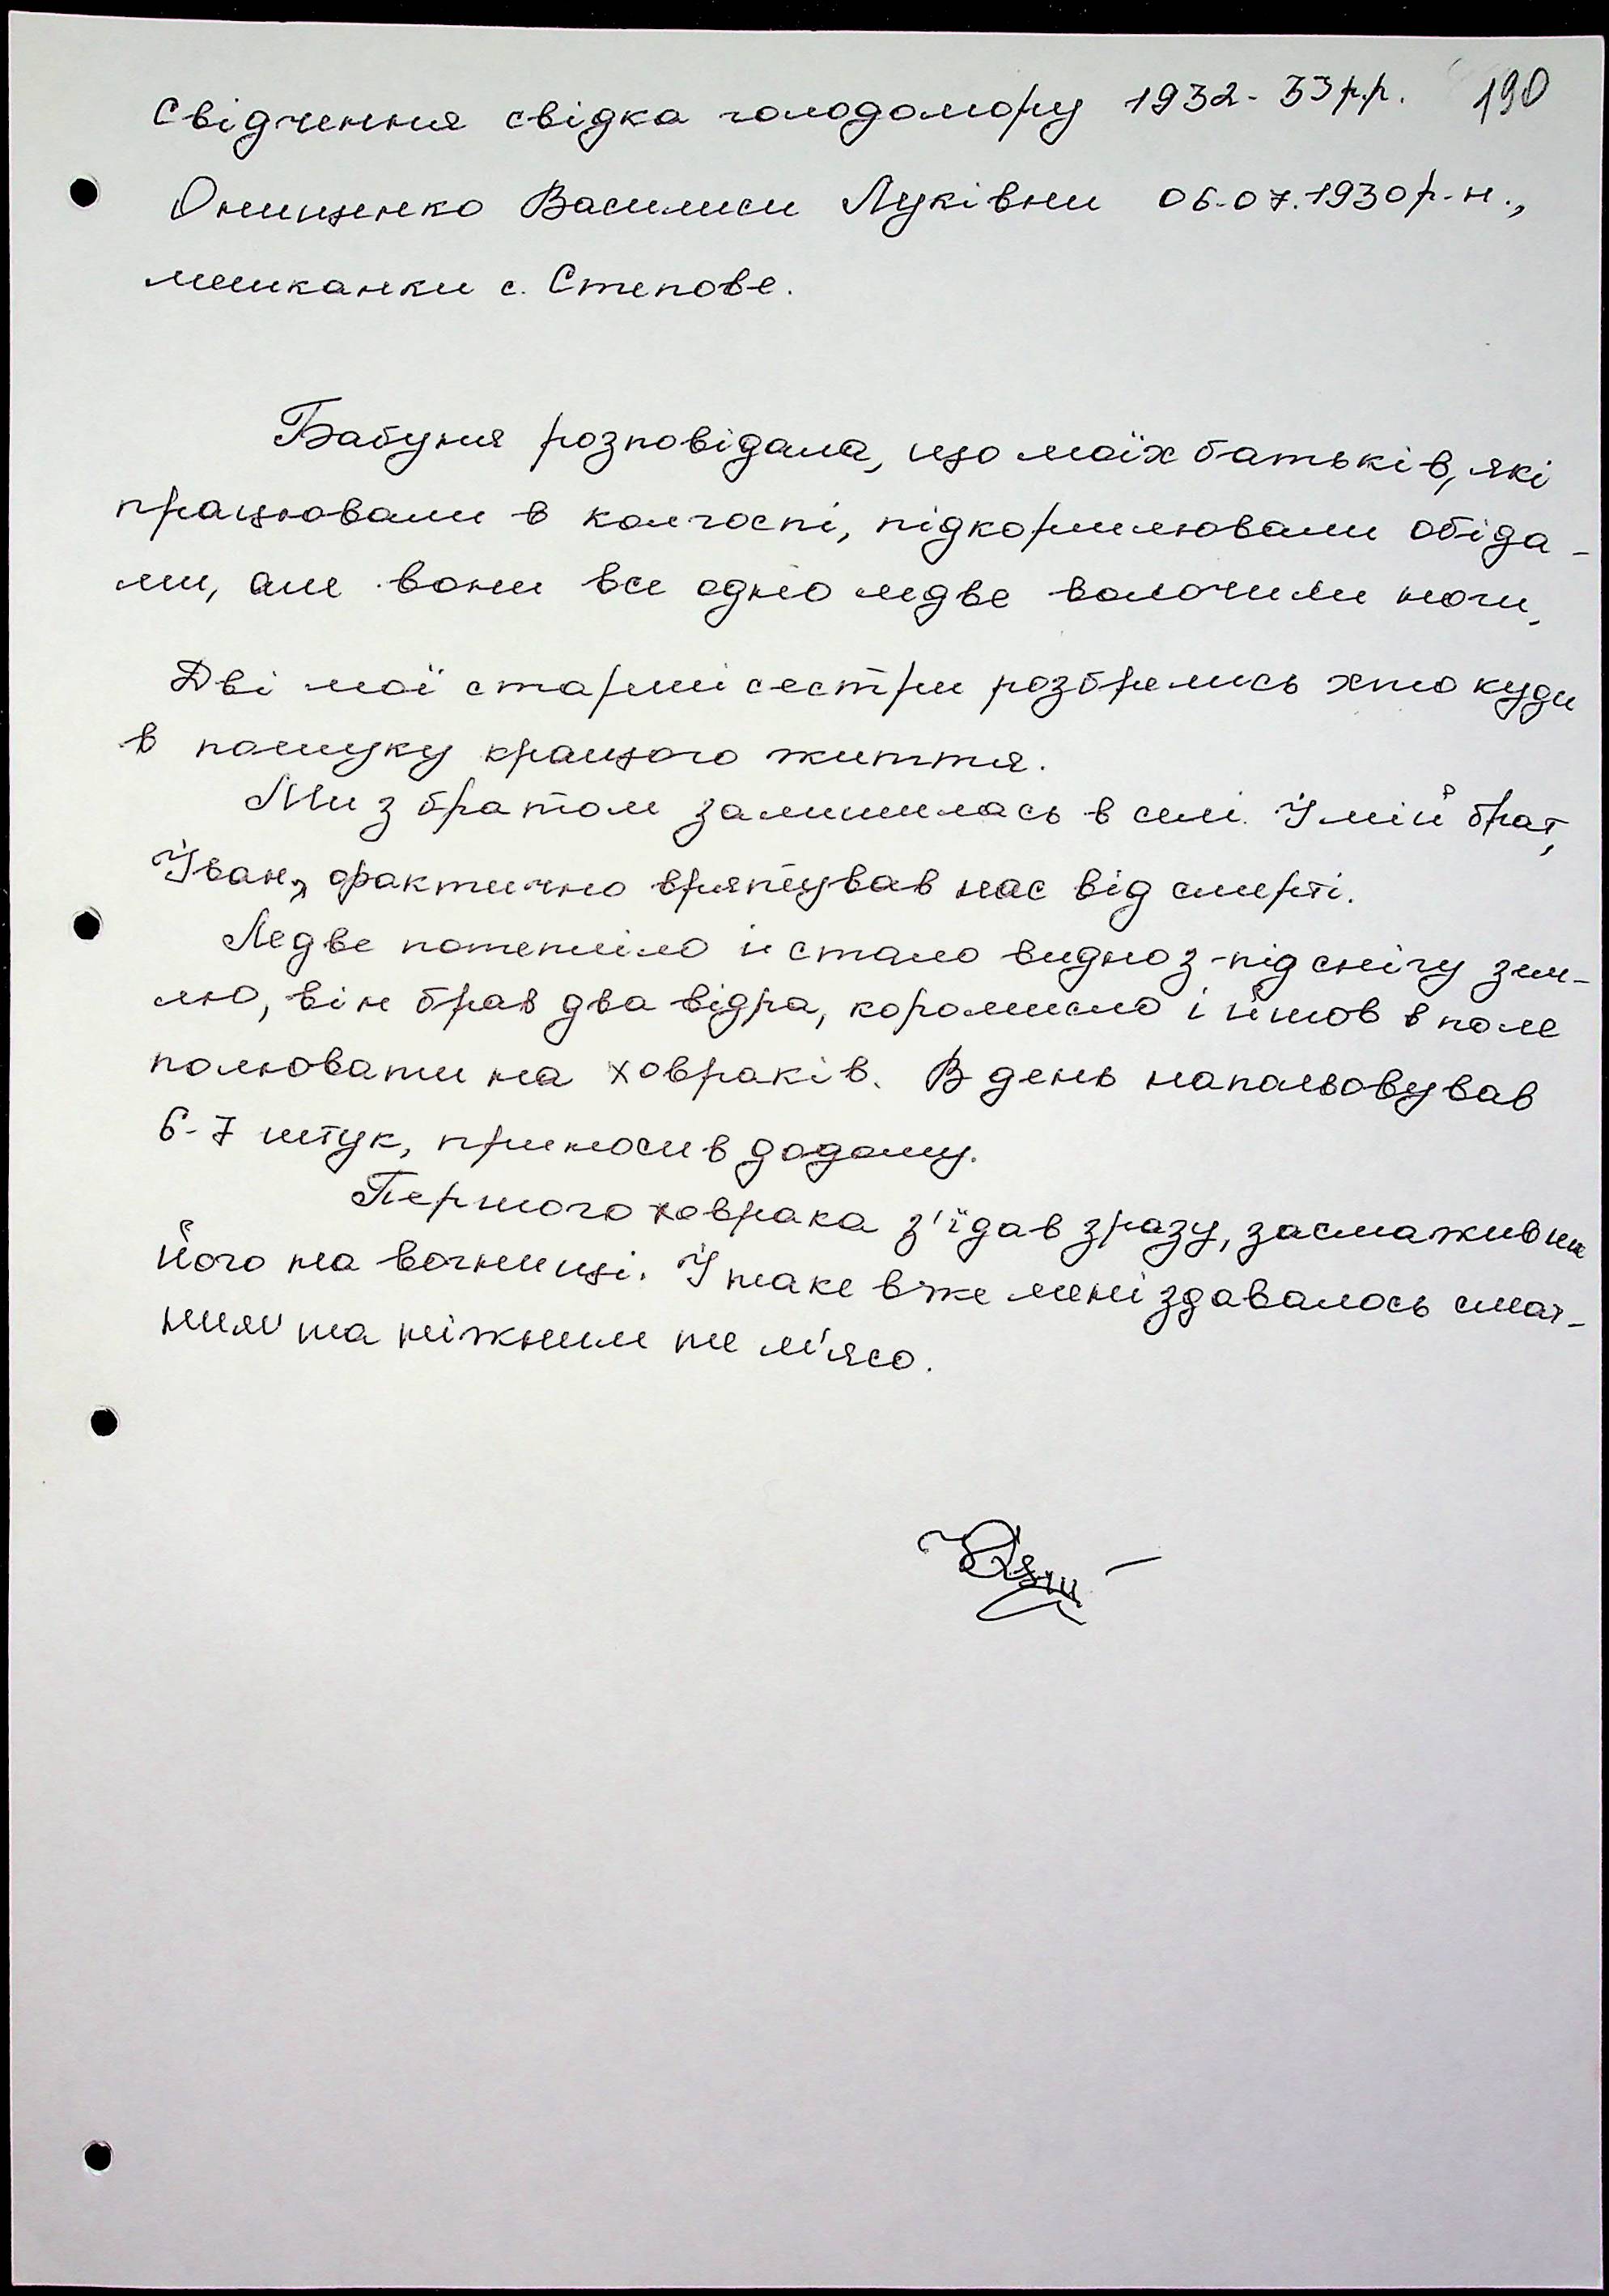 Свідчення свідка голодомору 1932-33 р.р. 190
Онищенко Василиси Луківни 06.07.1930 р.н.,
мешканки с. Степове.
Бабуня розповідала, що моїх батьків, які
працювали в колгоспі, підкормлювали обіда-
ми, але вони все одно ледве волочили ноги.
Дві мої старші сестри розбрелись хто куди
в пошуку кращого життя.
Ми з братом залишилась в селі. І мій брат,
Іван, фактично врятував нас від смерті.
Ледве потепліло й стало видно з-під снігу зем-
лю, він брав два відра, коромисло і йшов в поле
полювати на ховраків. В день напольовував
6-7 штук, приносив додому.
Першого ховрака з'їдав зразу, засмаживши
його на вогнищі. І таке вже мені здавалось смач-
ним та ніжним те м'ясо.